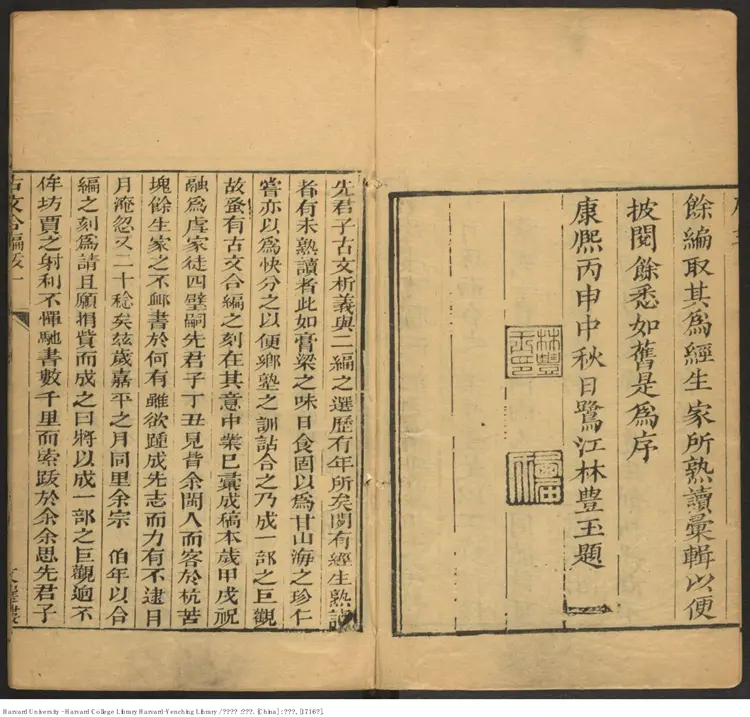 餘編取其為經生家所熟讀彙輯以便
披閱餘悉如舊是為序
康熈丙申中秋日鷺江林豊玉題
先君子古文析義與二編之選歷有年所矣閒有經生熟讀
者有未熟讀者此如膏粱之味日食固以為甘山海之珍仁
嘗亦以為快分之以便鄉塾之訓詁合之乃成一部之巨觀
故蚤有古文合編之刻在其意中業已彚成稿本歲甲戌祝
融為虐家徒四壁嗣先君子丁丑見背余閩人而客於杭苦
塊餘生家之不卹書於何有雖欲踵成先志而力有不逮日
月淹忽又二十稔矣玆歲嘉平之月同里余宗 伯年以合
編之刻為請且願捐貲而成之曰將以成一部之巨觀適不
侔坊賈之射利不憚馳書數千里而索跋於余余思先君子
古文合編跋 一
Harvard University - Harvard College Library Harvard-Yenching Library / ???? :???. [China] : ???, [1716?].